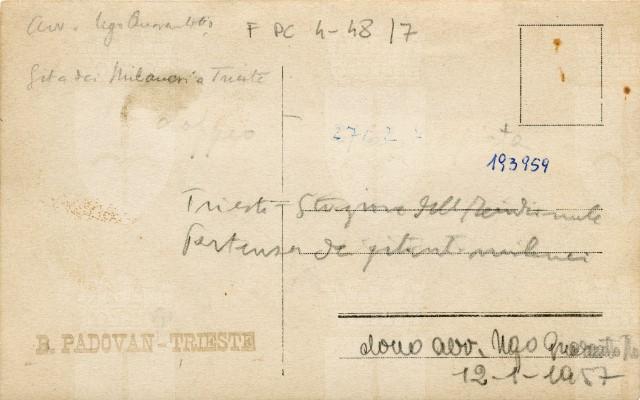 avv. Ugo Quarantotto
F PC 4-48/7
Gita dei Milanesi a Trieste
doppio
193959
Trieste - Stazione della Meridionale
Partenza dei gitanti milanesi
B. PADOVAN-TRIESTE
dono avv. Ugo Quarantotto
12-1-1957